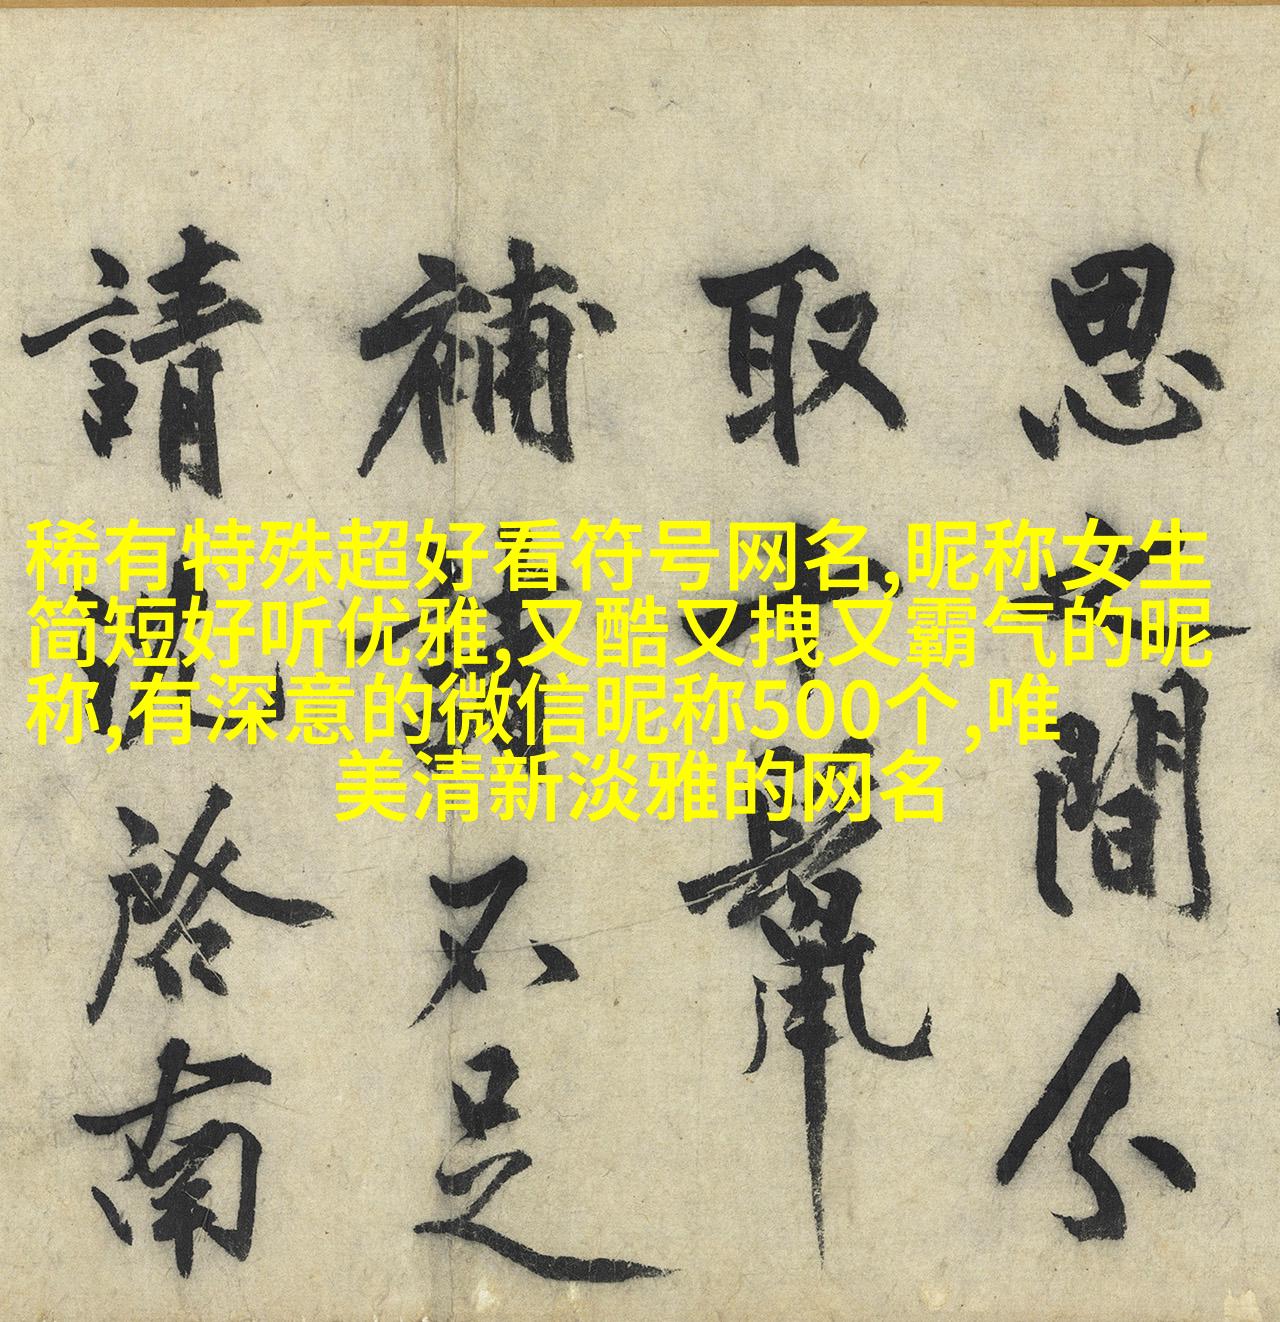 思之間分
取十髾
補 不足
請 啓南
稀有特殊超好看符号网名,昵称女生
简短好听优雅,又酷又拽又霸气的昵
称,有深意的微信昵称500个,唯
美清新淡雅的网名